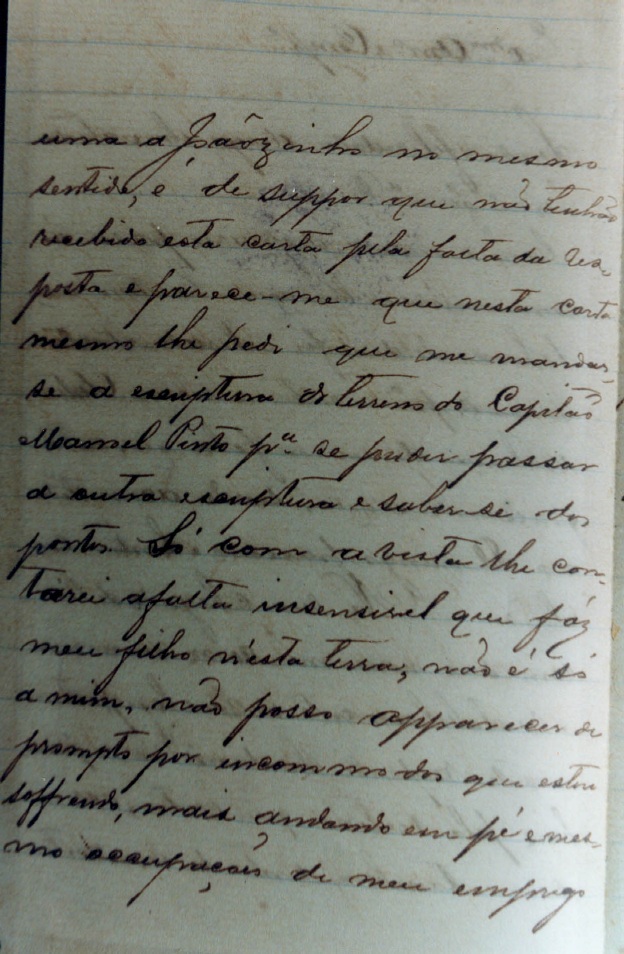 uma a Joãozinho no mesmo
sentido, é de suppor que não tenhão
recebido esta carta pela falta da res-
posta e parece-me que nesta carta
mesmo lhe pedi que me mandas-
se a escriptura do terreno do Capitão
Manoel Pinto pª. se poder passar
a outra escriptura e saber-se dos
pontos. Só com a vista lhe con-
tarei a falta insensivel que fáz
meu filho n'esta terra, não é só
a mim, não posso apparecer de
prompto por incommodos que estou
soffrendo, mais andando em pé e mes-
mo occupaçoes de meu emprego